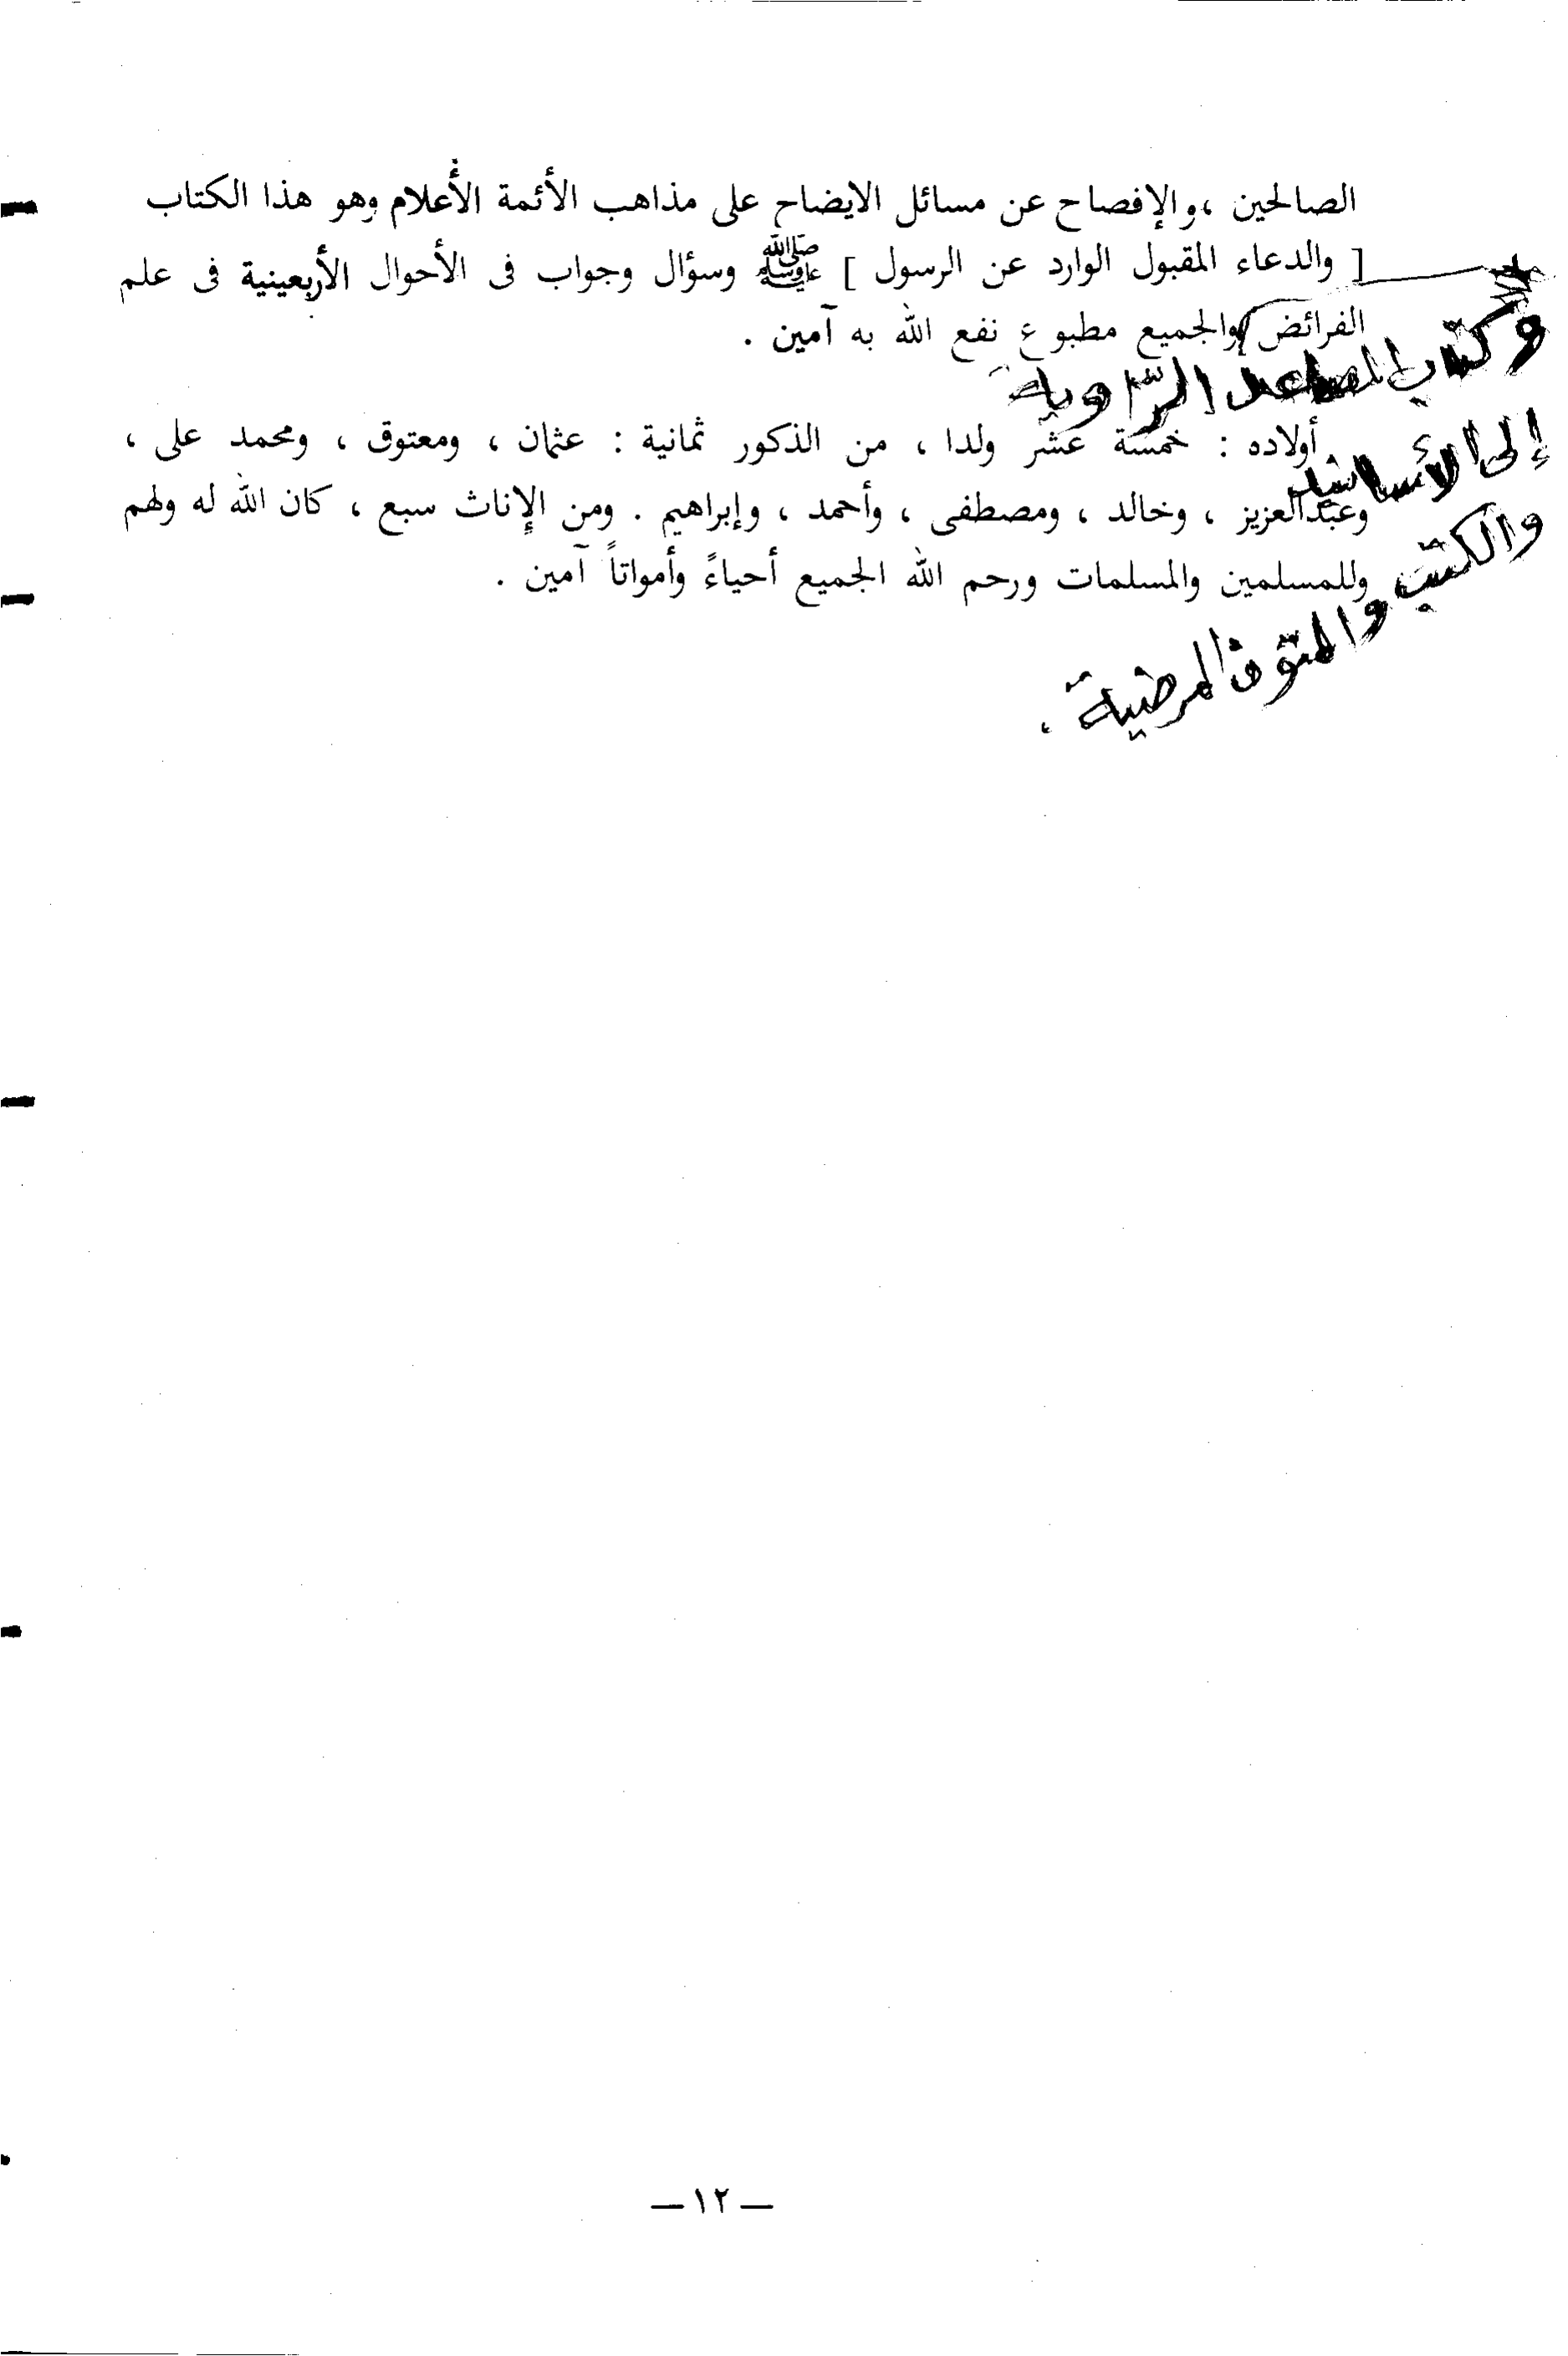 الصالحين ، والإفصاح عن مسائل الايضاح على مذاهب الأئمة الأعلام وهو هذا الكتاب
[ والدعاء المقبول الوارد عن الرسول ] ﷺ وسؤال وجواب فى الأحوال الأربعينية فى علم
الفرائض والجميع مطبوع نفع الله به آمين .
وكتاب المصاعد الرّاوية
إلى الأسانيد
والكتب
والمتون المرضية .
أولاده : خمسة عشر ولدا ، من الذكور ثمانية : عثمان ، ومعتوق ، ومحمد على ،
وعبدالعزيز ، وخالد ، ومصطفى ، وأحمد ، وإبراهيم . ومن الإناث سبع ، كان الله له ولهم
وللمسلمين والمسلمات ورحم الله الجميع أحياءً وأمواتاً آمين .
— ١٢ —